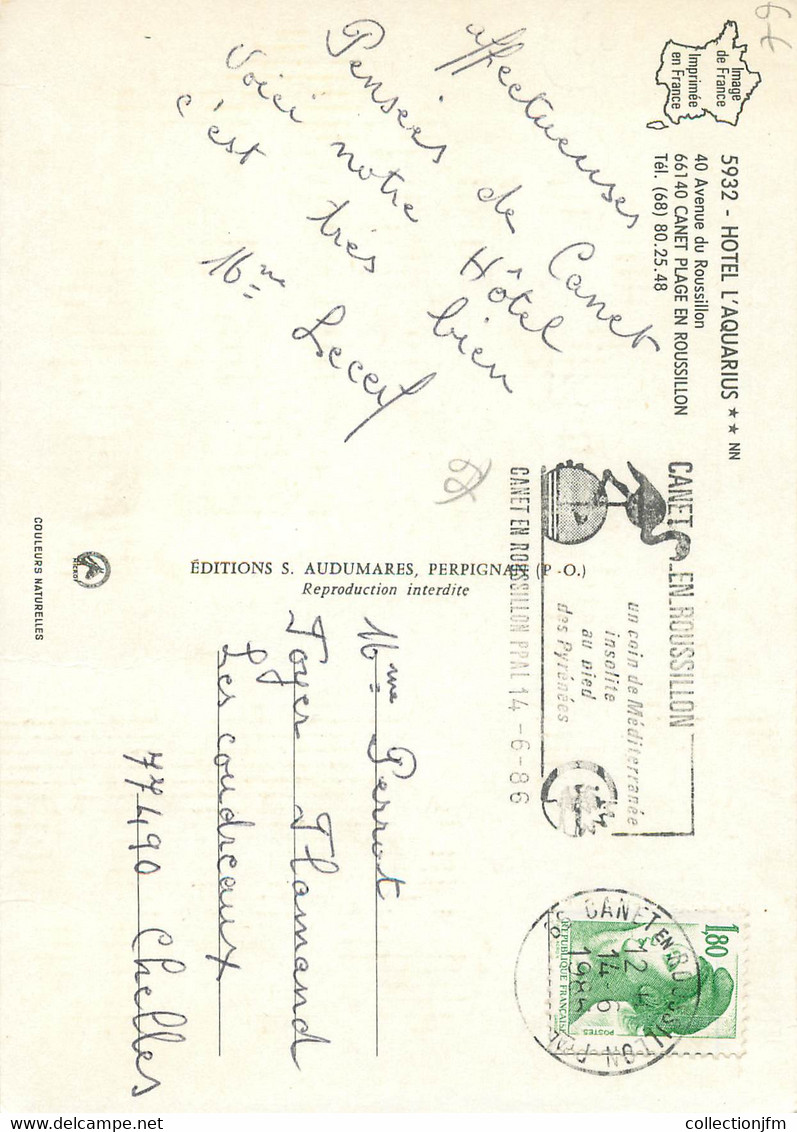 Image
de France
Imprimée
en France
5932 - HOTEL L'AQUARIUS ★★ NN
40 Avenue du Roussillon
66140 CANET PLAGE EN ROUSSILLON
Tél. (68) 80.25.48
affectueuses
Pensées de Canet
Voici notre Hôtel
c'est très bien
Mme
CANET EN ROUSSILLON
un coin de Méditerranée
insolite
au pied
des Pyrénées
CANET EN ROUSSILLON PPAL 14-6-86
1,80
REPUBLIQUE FRANÇAISE
POSTES
66 CANET EN ROUSSILLON PPAL
14-6
ÉDITIONS S. AUDUMARES, PERPIGNAN (P.-O.)
Reproduction interdite
Mme Perrot
Foyer Flamand
Les coudreaux
77490 Chelles
COULEURS NATURELLES
collectionjfm